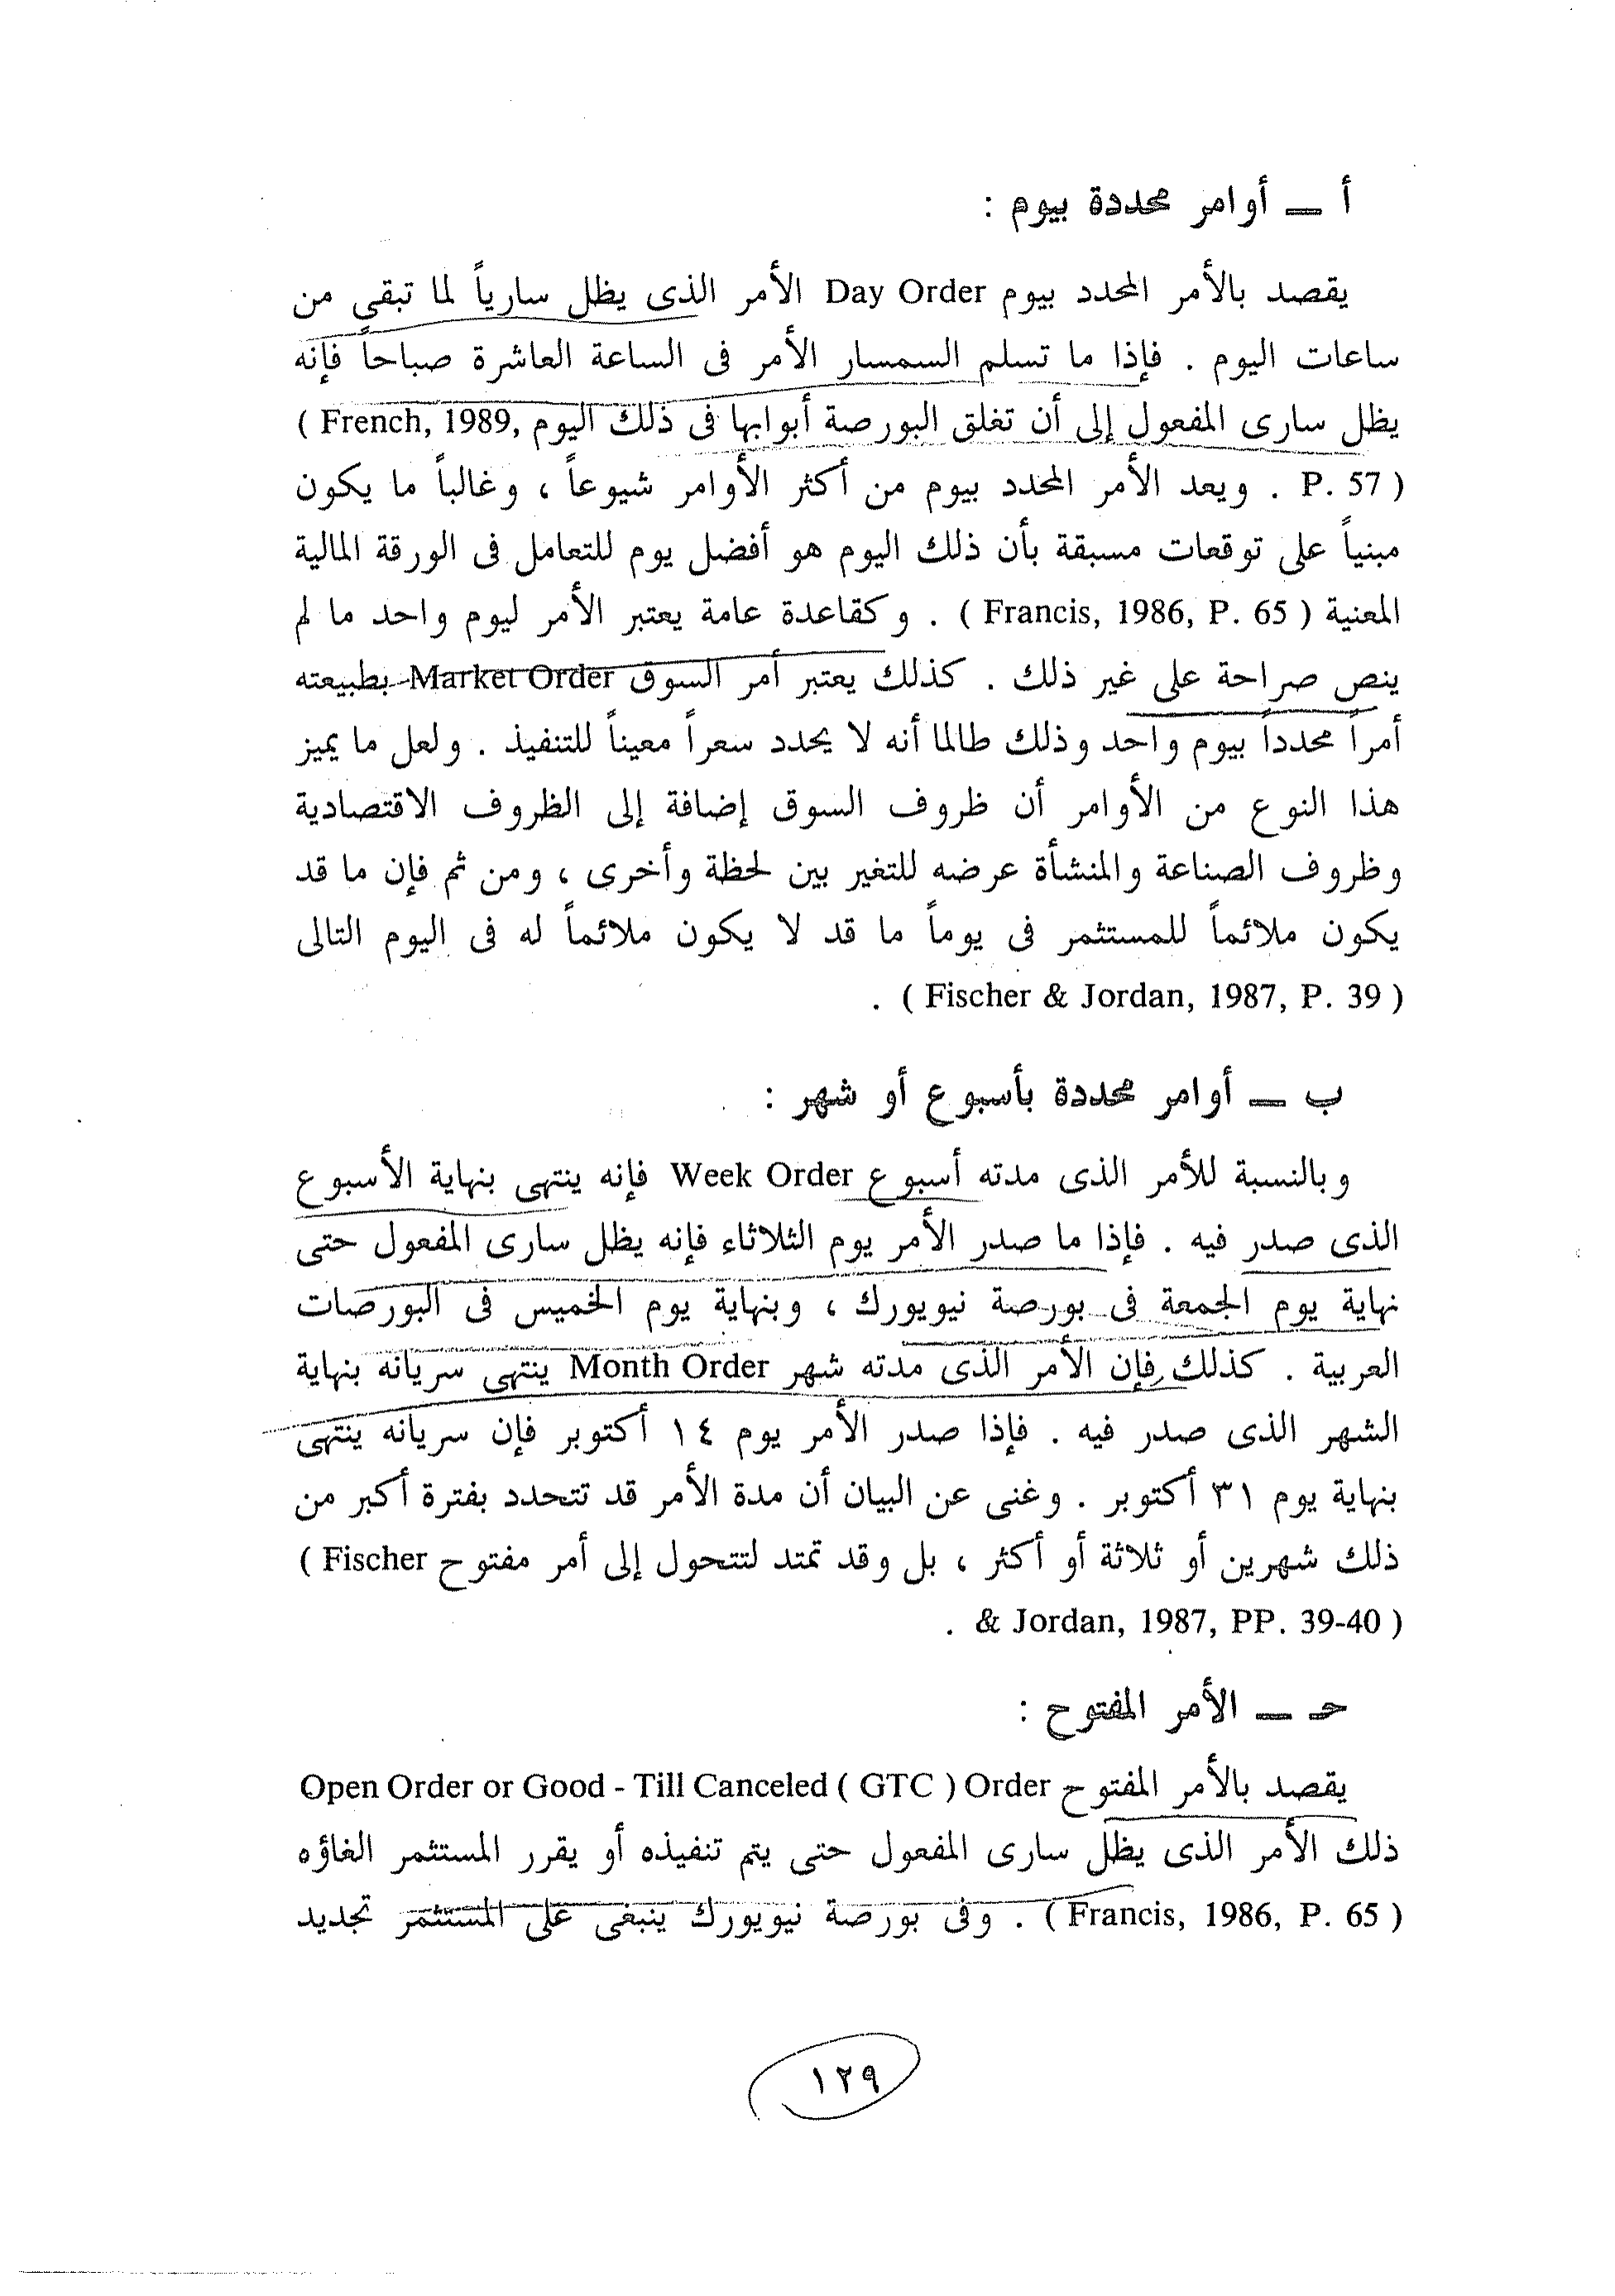 أ ــ أوامر محددة بيوم :
يقصد بالأمر المحدد بيوم Day Order الأمر الذى يظل سارياً لما تبقى من
ساعات اليوم . فإذا ما تسلم السمسار الأمر فى الساعة العاشرة صباحاً فإنه
يظل سارى المفعول إلى أن تغلق البورصة أبوابها فى ذلك اليوم ( French, 1989,
P. 57 ) . ويعد الأمر المحدد بيوم من أكثر الأوامر شيوعاً ، وغالباً ما يكون
مبنياً على توقعات مسبقة بأن ذلك اليوم هو أفضل يوم للتعامل فى الورقة المالية
المعنية ( Francis, 1986, P. 65 ) . وكقاعدة عامة يعتبر الأمر ليوم واحد ما لم
ينص صراحة على غير ذلك . كذلك يعتبر أمر السوق Market Order بطبيعته
أمراً محدداً بيوم واحد وذلك طالما أنه لا يحدد سعراً معيناً للتنفيذ . ولعل ما يميز
هذا النوع من الأوامر أن ظروف السوق إضافة إلى الظروف الاقتصادية
وظروف الصناعة والمنشأة عرضه للتغير بين لحظة وأخرى ، ومن ثم فإن ما قد
يكون ملائماً للمستثمر فى يوماً ما قد لا يكون ملائماً له فى اليوم التالى
( Fischer & Jordan, 1987, P. 39 ) .
ب ــ أوامر محددة بأسبوع أو شهر :
وبالنسبة للأمر الذى مدته أسبوع Week Order فإنه ينتهى بنهاية الأسبوع
الذى صدر فيه . فإذا ما صدر الأمر يوم الثلاثاء فإنه يظل سارى المفعول حتى
نهاية يوم الجمعة فى بورصة نيويورك ، وبنهاية يوم الخميس فى البورصات
العربية . كذلك فإن الأمر الذى مدته شهر Month Order ينتهى سريانه بنهاية
الشهر الذى صدر فيه . فإذا صدر الأمر يوم ١٤ أكتوبر فإن سريانه ينتهى
بنهاية يوم ٣١ أكتوبر . وغنى عن البيان أن مدة الأمر قد تتحدد بفترة أكبر من
ذلك شهرين أو ثلاثة أو أكثر ، بل وقد تمتد لتتحول إلى أمر مفتوح ( Fischer
& Jordan, 1987, PP. 39-40 ) .
حـ ــ الأمر المفتوح :
يقصد بالأمر المفتوح Open Order or Good - Till Canceled ( GTC ) Order
ذلك الأمر الذى يظل سارى المفعول حتى يتم تنفيذه أو يقرر المستثمر الغاؤه
( Francis, 1986, P. 65 ) . وفى بورصة نيويورك ينبغى على المستثمر تجديد
١٢٩